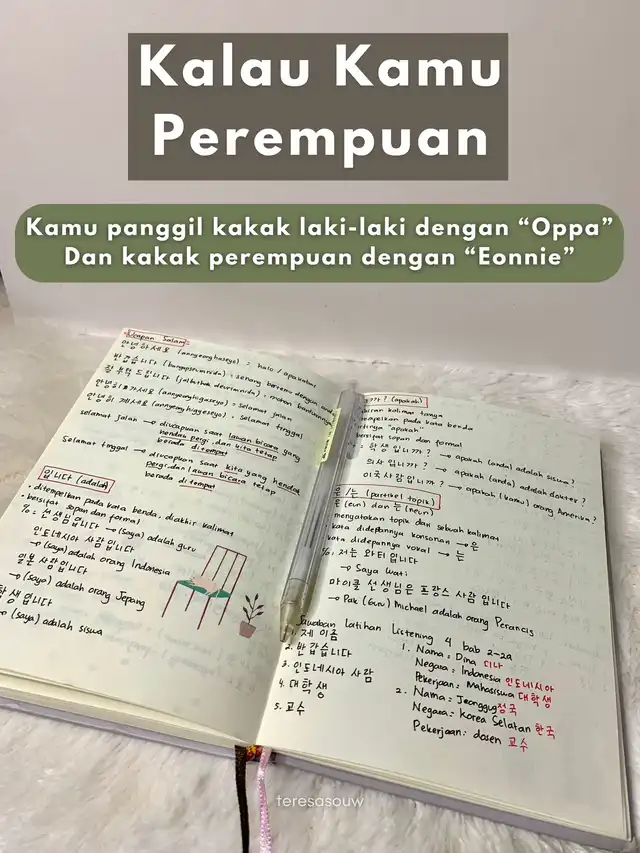 Kalau Kamu
Perempuan
Kamu panggil kakak laki-laki dengan “Oppa”
Dan kakak perempuan dengan “Eonnie”
Ucapan Salam
안녕하세요 (annyeonghaseyo) = halo / apa kabar
반갑습니다 (bangapseumnida) : senang bertemu dengan anda
잘 부탁드립니다 (jalbuthak deurimnida) : mohon bantuannya
안녕히 가세요 (annyeonghigaseyo) = selamat jalan
안녕히 계세요 (annyeong higyeseyo) . selamat tinggal
selamat jalan → diucapkan saat lawan bicara yang
hendak pergi, dan kita tetap
berada ditempat
Selamat tinggal → diucapkan saat kita yang hendak
pergi, dan lawan bicara tetap
berada ditempat
입니다 (adalah)
• ditempelkan pada kata benda, diakhir kalimat
• bersifat sopan dan formal
%= 선생님입니다 → (saya) adalah guru
인도네시아 사람입니다
→ (saya) adalah orang Indonesia
일본 사람입니다
→ (saya) adalah orang Jepang
학생입니다
→ (saya) adalah siswa
까? (apakah)
kalimat tanya
pada kata benda
"apakah"
sopan dan formal
= 학생입니까? → apakah (anda) adalah siswa?
의사입니까? → apakah (anda) adalah dokter?
미국사람입니까? → apakah (kamu) orang Amerika?
은/는 (partikel topik)
은 (eun) dan 는 (neun)
menyatakan topik dari sebuah kalimat
kata didepannya konsonan → 은
kata didepannya vokal → 는
%, 저는 와티입니다
→ Saya Wati
마이클 선생님은 프랑스 사람입니다
→ Pak (Guru) Michael adalah orang Perancis
Jawaban latihan Listening 4 bab 2-2a
1. 제 이름
2. 반갑습니다
3. 인도네시아 사람
4. 대학생
5. 교수
1. Nama = Dina 디나
Negara = Indonesia 인도네시아
Pekerjaan = Mahasiswa 대학생
2. Nama = Jeonggug 정국
Negara = Korea Selatan 한국
Pekerjaan: dosen 교수
teresasouw